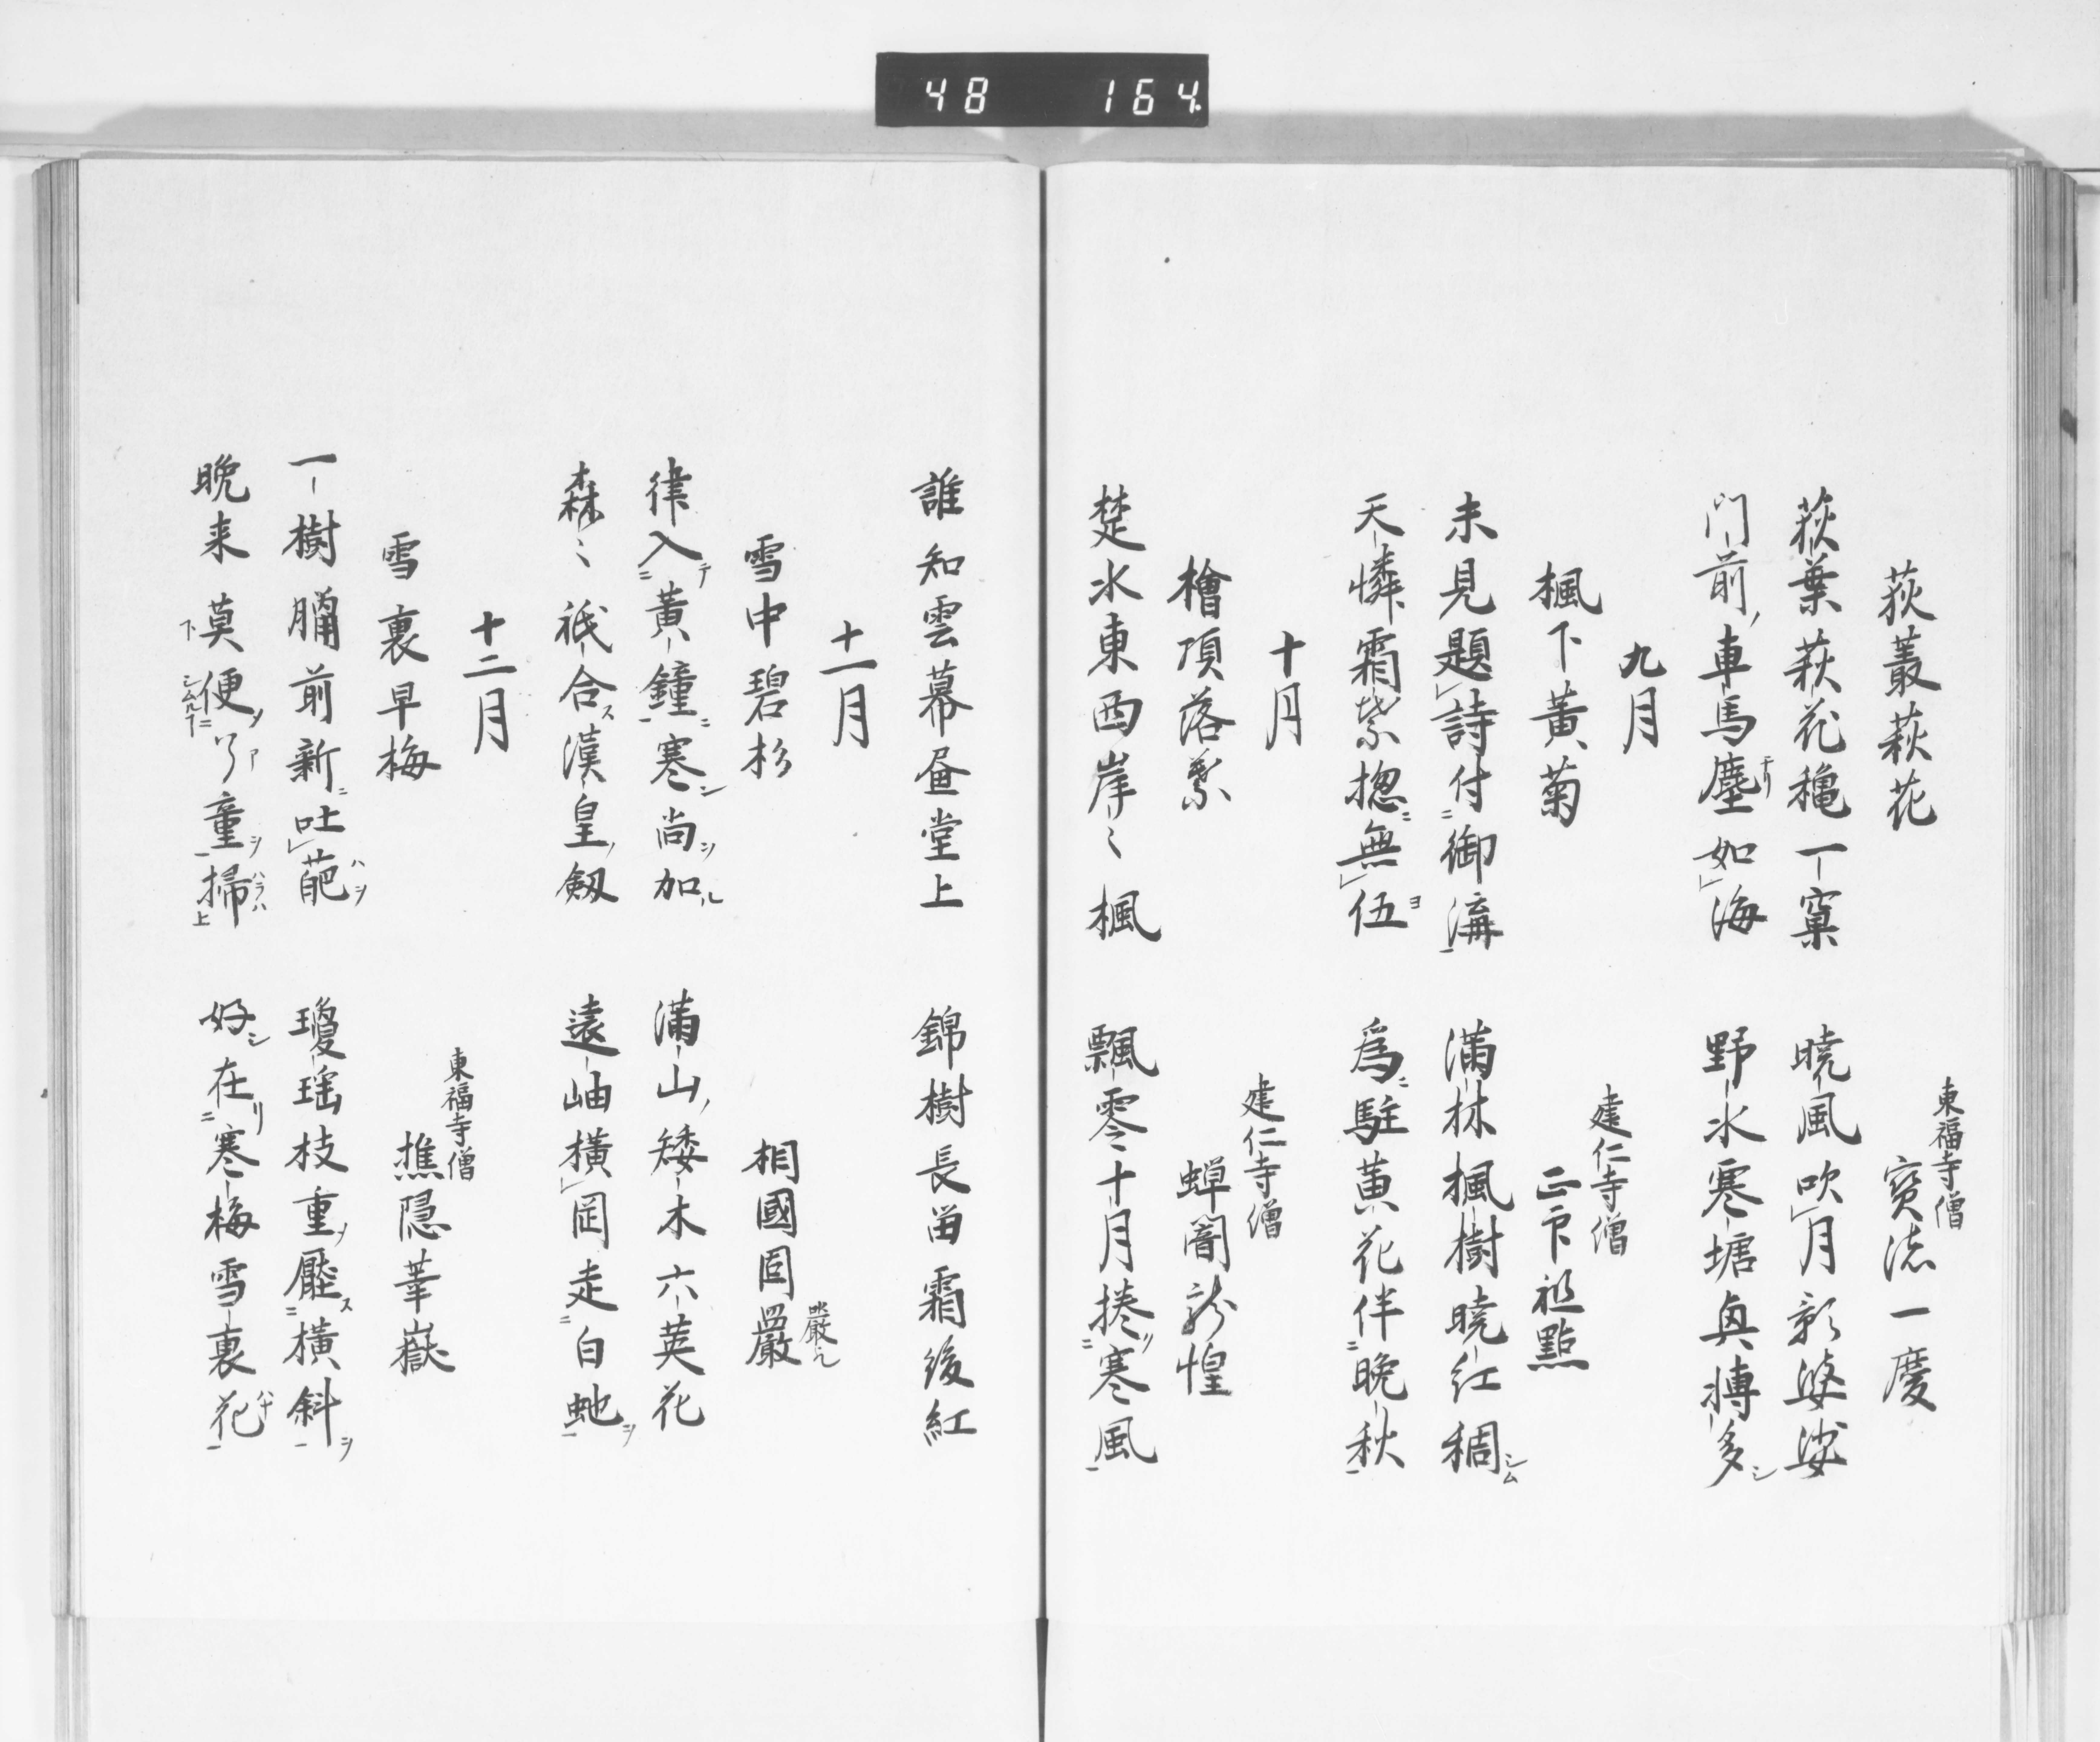 48 164
荻叢萩花
東福寺僧
寳渚一慶
萩葉萩花穐一窠 曉風吹月影婆娑
門前車馬塵如海 野水寒塘奥摶多
九月
楓下黄菊
建仁寺僧
正中祖點
未見題詩付御溝 満林楓樹曉紅稠
天憐霜紫揔無伍 爲駐黄花伴晩秋
十月
檜頂落葉
建仁寺僧
蝉闇龍惶
楚水東西岸〻楓 飄零十月捲寒風
誰知雲幕昼堂上 錦樹長留霜後紅
十一月
雪中碧杉
相國固巖
律入黄鐘寒尚加 満山矮木六英花
森〻祇合漢皇劔 遠岫横岡走白虵
十二月
雪裏早梅
東福寺僧
樵隠華嶽
一樹臈前新吐葩 瓊瑶枝重壓横斜
晩来莫便了童掃 好在寒梅雪裏花